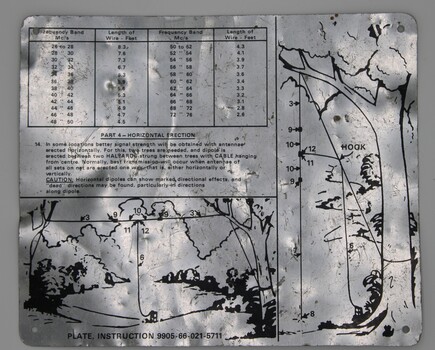 Frequency Band Length of Frequency Band Length of
Mc/s Wire - Feet Mc/s Wire - Feet
26 to 28 8.3 50 to 52 4.3
28 30 52 54
30 32 7.3 54 56
32 6.7 56 58
58 60
60 62 3.4
62 64 3.3
40 42 64 66
42 44 5.1 66 68
44 46 68 72 2.8
46 48 4.7 72 76 2.6
48 50
PART 4 – HORIZONTAL ERECTION
14. In some locations better signal strength will be obtained with antennae
erected horizontally. For this, two trees are needed, and dipole is
erected between two HALYARDS strung between trees with CABLE hanging
from centre. Normally, best transmission will occur when antennae of
all sets on net are erected one way, that is, either horizontally or
vertically.
CAUTION: Horizontal dipoles can show marked directional effects, and
"dead" directions may be found, particularly in directions
along dipole.
3 9 10 9 3
11 12
6
3
9
10
12
11
10
9
HOOK
3
6
8
PLATE, INSTRUCTION 9905-66-021-5711